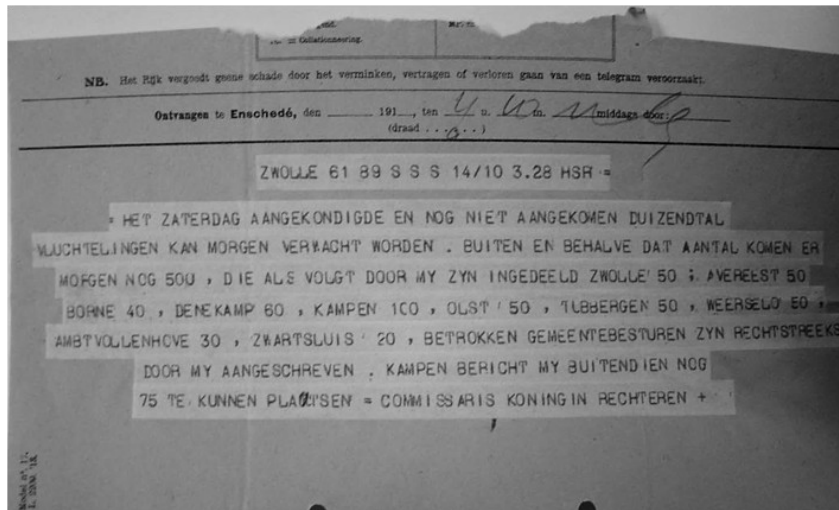 Collationneering.
NB. Het Rijk vergoedt geene schade door het verminken, vertragen of verloren gaan van een telegram veroorzaakt.
Ontvangen te Enschedé, den 191 , ten 4 u. m. middags door:
(draad . . . . . )
ZWOLLE 61 89 S S S 14/10 3.28 HSR =
= HET ZATERDAG AANGEKONDIGDE EN NOG NIET AANGEKOMEN DUIZENDTAL
VLUCHTELINGEN KAN MORGEN VERWACHT WORDEN . BUITEN EN BEHALVE DAT AANTAL KOMEN ER
MORGEN NOG 500 , DIE ALS VOLGT DOOR MY ZYN INGEDEELD ZWOLLE' 50 ; AVEREEST 50
BORNE 40 , DENEKAMP 60 , KAMPEN 100 , OLST ' 50 , TUBBERGEN 50 , WEERSELO 50 ,
AMBTVOLLENHOVE 30 , ZWARTSLUIS ' 20 , BETROKKEN GEMEENTEBESTUREN ZYN RECHTSTREEKS
DOOR MY AANGESCHREVEN . KAMPEN BERICHT MY BUITENDIEN NOG
75 TE KUNNEN PLAATSEN = COMMISSARIS KONINGIN RECHTEREN +